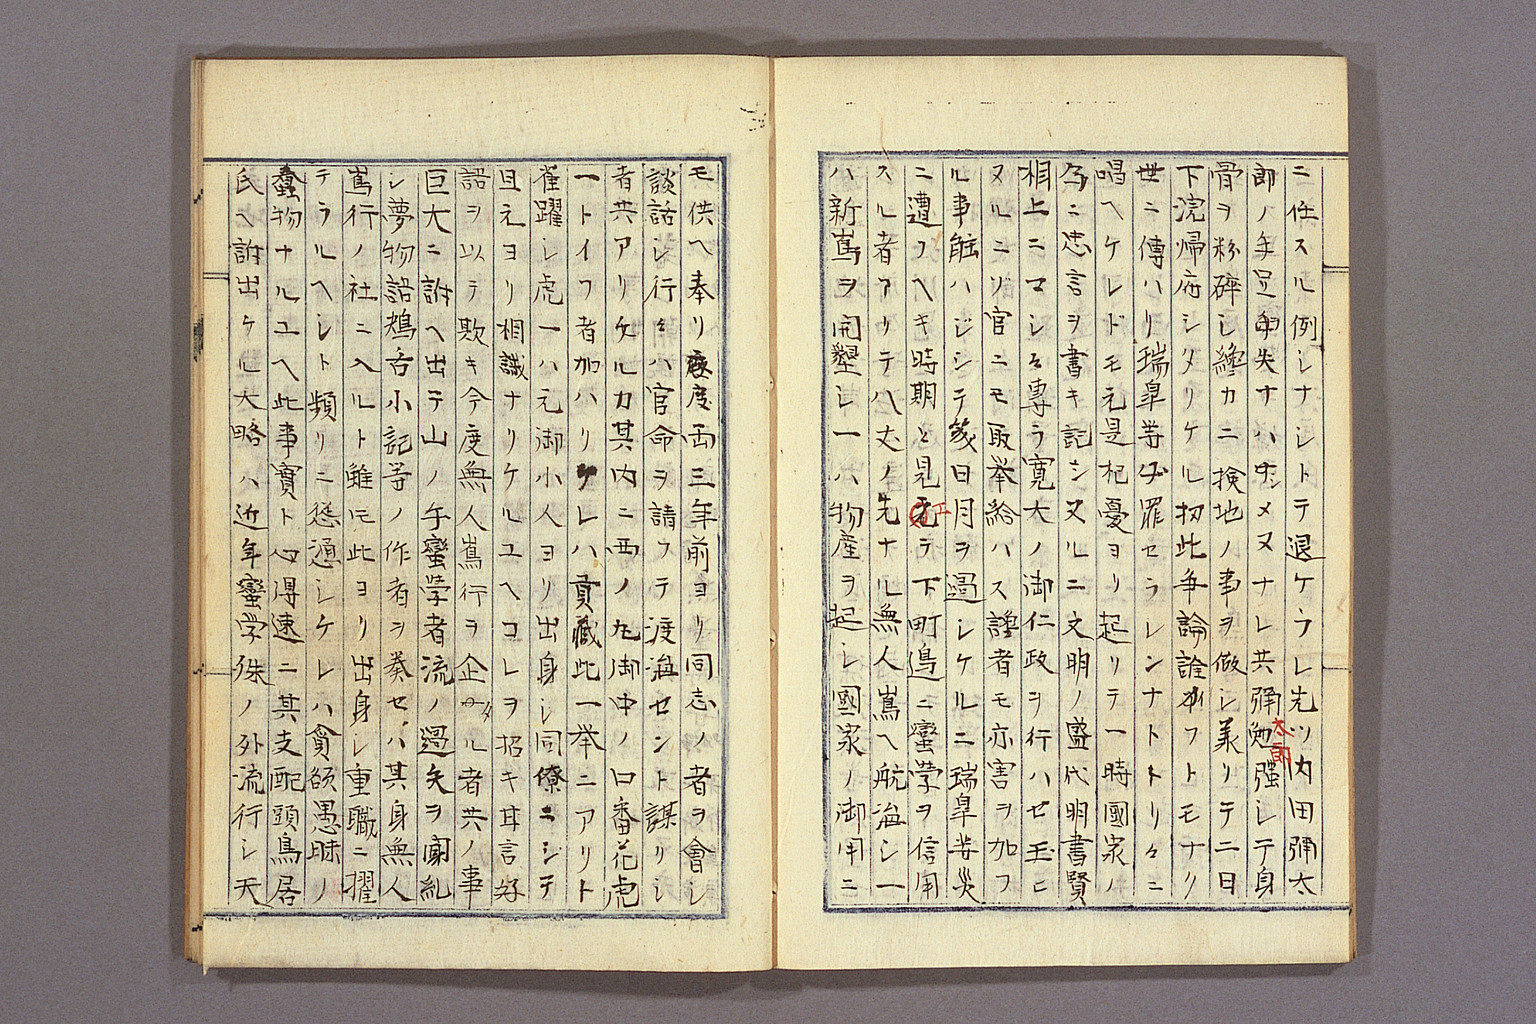 ニ任スル例シナシトテ退ケラレ先ツ内田彌太
郎ノ年足ラ失ナハ中メヌナレ共彌太郎勉強シテ身
骨ヲ粉碎シ纔カニ検地ノ事ヲ做シ羕リテ二日
下浣帰府シタリケル扨此争論詮ナフトモナク
世ニ傳ハリ瑞皐等必罪セラレンナトトリ々ニ
唱ヘケレドモ元是杞憂ヨリ起リテ一時國家ノ
為ニ忠言ヲ書キ記シ又ルニ文明ノ盛代明書賢
相上ニマシ々専ラ寛大ノ御仁政ヲ行ハセ玉ヒ
ヌルニソ官ニモ取挙給ハス讒者モ亦害ヲ加フ
ル事能ハジシテ笶日月ヲ過シケルニ瑞皐等災
ニ遭フヘキ時期ト見エテ下町邉ニ蠻学ヲ信用
スル者アリテ八丈ノ先ナル無人嶌ヘ航海シ一
ハ新嶌ヲ開墾シ一ハ物産ヲ起シ國家ノ御用ニ
モ供ヘ奉リ度両三年前ヨリ同志ノ者ヲ會シ
談話シ行々ハ官命ヲ請フテ渡海セント謀リシ
者共アリケルカ其内ニ西ノ丸御中ノ口番花虎
一トイフ者加ハリケレハ貢藏此一挙ニアリト
雀躍シ虎一ハ元御小人ヨリ出身シ同僚ニシテ
且元ヨリ相識ナリケルユヘコレヲ招キ甘言好
語ヲ以テ欺キ今度無人嶌行ヲ企タル者共ノ事
巨大ニ訴ヘ出テ山ノ手蠻学者流ノ過矢ヲ閙糺
シ夢物語鴃舌小記等ノ作者ヲ発セハ其身無人
嶌行ノ社ニ入ルト雖モ此ヨリ出身シ重職ニ擢
テラルヘシト頻リニ慫慂シケレハ貪欲愚昧ノ
蠢物ナルユヘ此事實ト心得速ニ其支配頭鳥居
氏ヘ訴出ケル大略ハ近年蠻学殊ノ外流行シ天